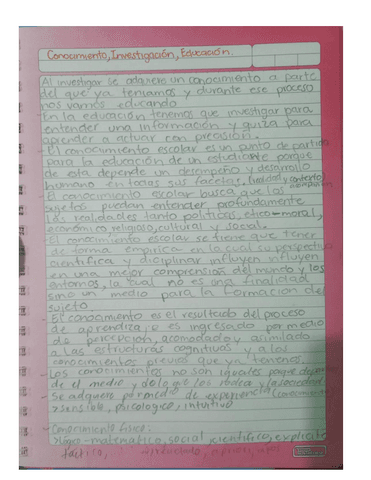 Conocimiento, Investigación, Educación.
Al investigar se adquiere un conocimiento a parte
del que ya teniamos y durante ese proceso
nos vamos educando
En la educación tenemos que investigar para
entender una información y quiza para
aprender a actuar con precisión.
- El conocimiento escolar es un punto de partida
para la educación de un estudiante porque
de esta depende un desempeño y desarrollo
humano en todas sus facetas,
El conocimiento escolar busca que los
sujetos puedan entender profundamente
las realidades tanto politicas, etico-moral,
económico, religioso, cultural y social.
El conocimiento escolar se tiene que tener
de forma empirica en la cual su perspectiva
cientifica y disciplinar influyen influyen
en una mejor comprensión del mundo y los
entornos, la cual no es una finalidad
sino un medio para la formación del
sujeto
- El conocimiento es el resultado del proceso
de aprendizaje es ingresado por medio
de percepción, acomodado y asimilado
a las estructuras cognitivas y a los
conocimientos previos que ya tenemos.
- Los conocimientos no son iguales porque depende
de el medio y de lo que los rodea y la sociedad
- Se adquiere por medio de experiencia
sensible, psicologico, intuitivo
- Conocimiento fisico:
- matematico, social, cientifico, explicito
factico,